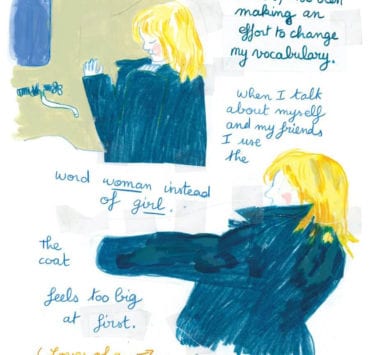 been
making an
effort to change
my vocabulary.
when I talk
about myself
and my friends
I use
the
word woman instead
of girl.
The
coat
feels too big
at first.